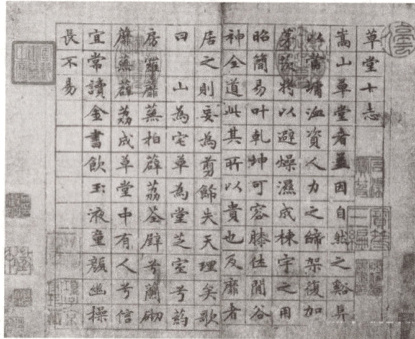 草堂十志
嵩山草堂者蓋因自然之谿阜
以當墉洫資人力之締架復加
茅茨將以避燥濕成棟宇之用
昭簡易叶乾坤可容膝休閒谷
神全道此其所以貴也及靡者
居之則妄為剪飾失天理矣歌
曰 山為宅草為堂芝室兮葯
房羅蘼蕪拍薜荔荃壁兮蘭砌
蘼蕪薜荔成草堂中有人兮信
宜常讀金書飲玉液童顏幽操
長不易